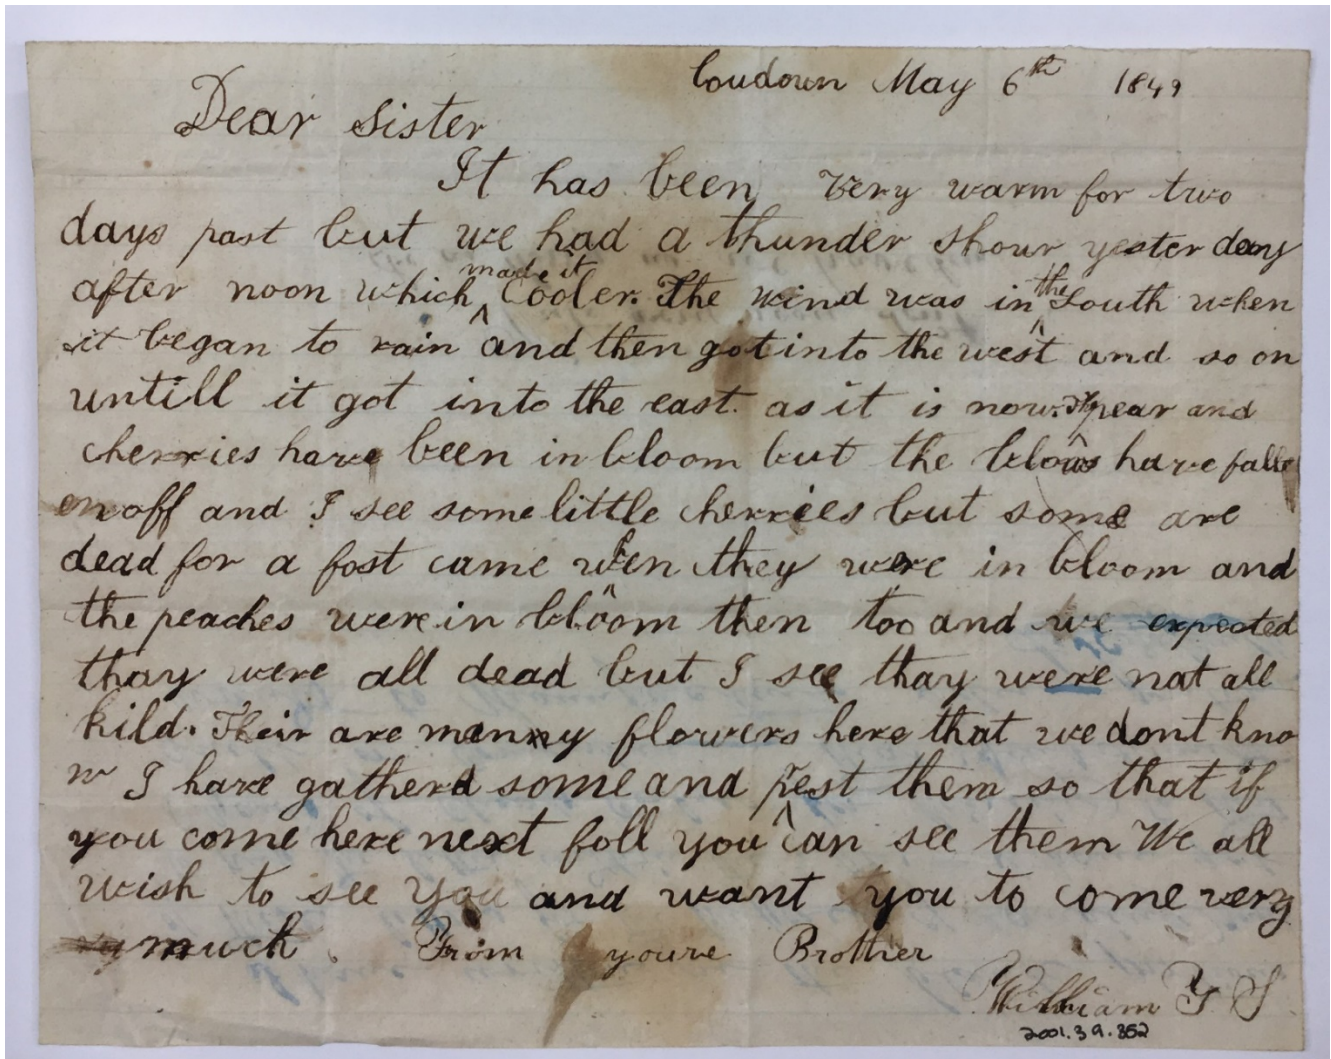 Loudoun May 6th 1849
Dear Sister
It has been very warm for two
days past but we had a thunder shour yesterday
after noon which made it Cooler. The wind was in the South when
it began to rain and then got into the west and so on
untill it got into the east as it is now. pear and
cherries have been in bloom but the bloos have fall
en off and I see some little cherries but some are
dead for a fost came when they were in bloom and
the peaches were in bloom then too and we expected
thay were all dead but I see thay were not all
kild. Their are menny flowers here that we dont kno
w I have gatherd some and prest them so that if
you come here next foll you can see them We all
wish to see you and want you to come very
much. From youre Brother
William Y S
2001.39.352